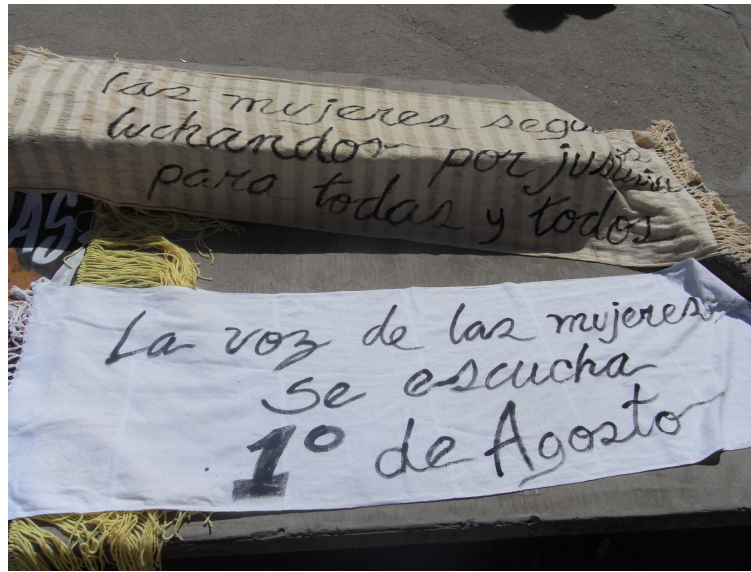 las mujeres
luchando por
para todas y todos
AS
La voz de las mujeres
se escucha
1º de Agosto